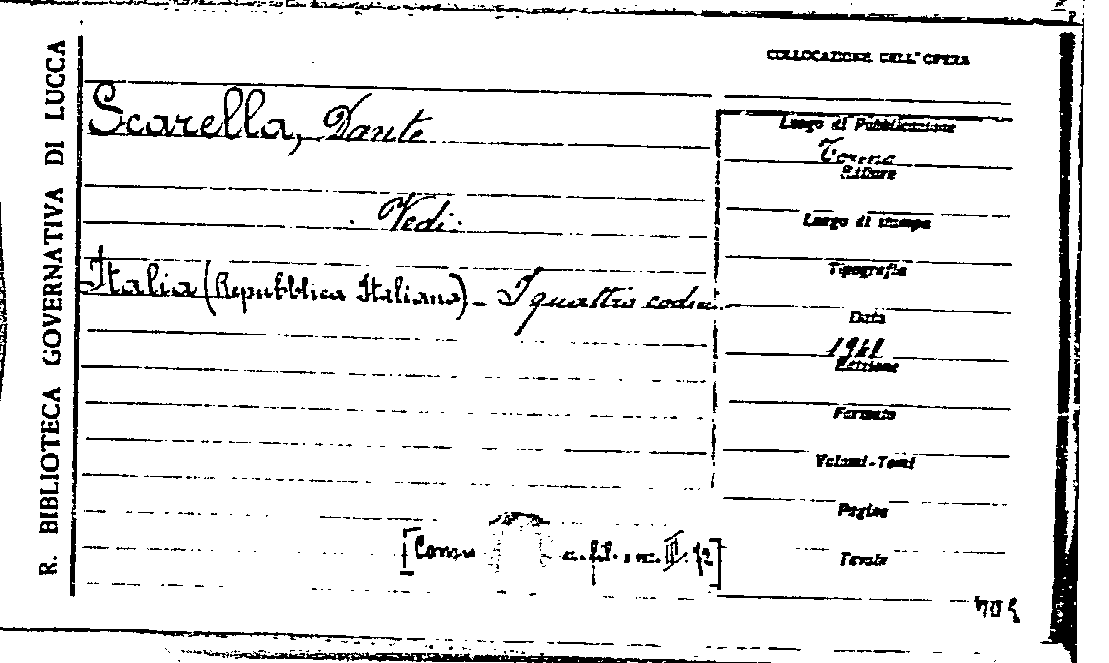 R. BIBLIOTECA GOVERNATIVA DI LUCCA
COLLOCAZIONE DELL'OPERA
Scarella, Dante
Vedi:
Italia (Repubblica Italiana) - I quattro codici
Luogo di Pubblicazione
Editore
Luogo di stampa
Tipografia
Data
Edizione
Formato
Volumi-Tomi
Pagine
Tavole